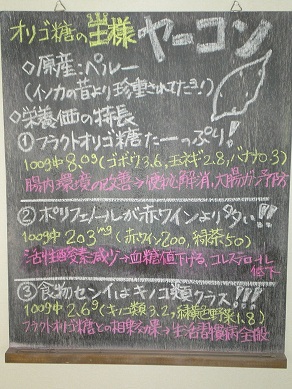 オリゴ糖の王様 ヤーコン
◇原産:ペルー
(インカの昔より珍重されてたョ!)
◇栄養価の特長
①フラクトオリゴ糖たーっぷり!
100g中8.0g(ゴボウ3.6、玉ネギ2.8、バナナ0.3)
腸内環境の改善→便秘解消、大腸ガン予防
②ポリフェノールが赤ワインより多い!!!
100g中203mg(赤ワイン200、緑茶50)
活性酸素減り→血糖値下げる、コレステロール低下
③食物センイはキノコ類クラス!!!
100g中2.6g(キノコ類3.2、緑黄色野菜1.8)
フラクトオリゴ糖との相乗効果→生活習慣病全般